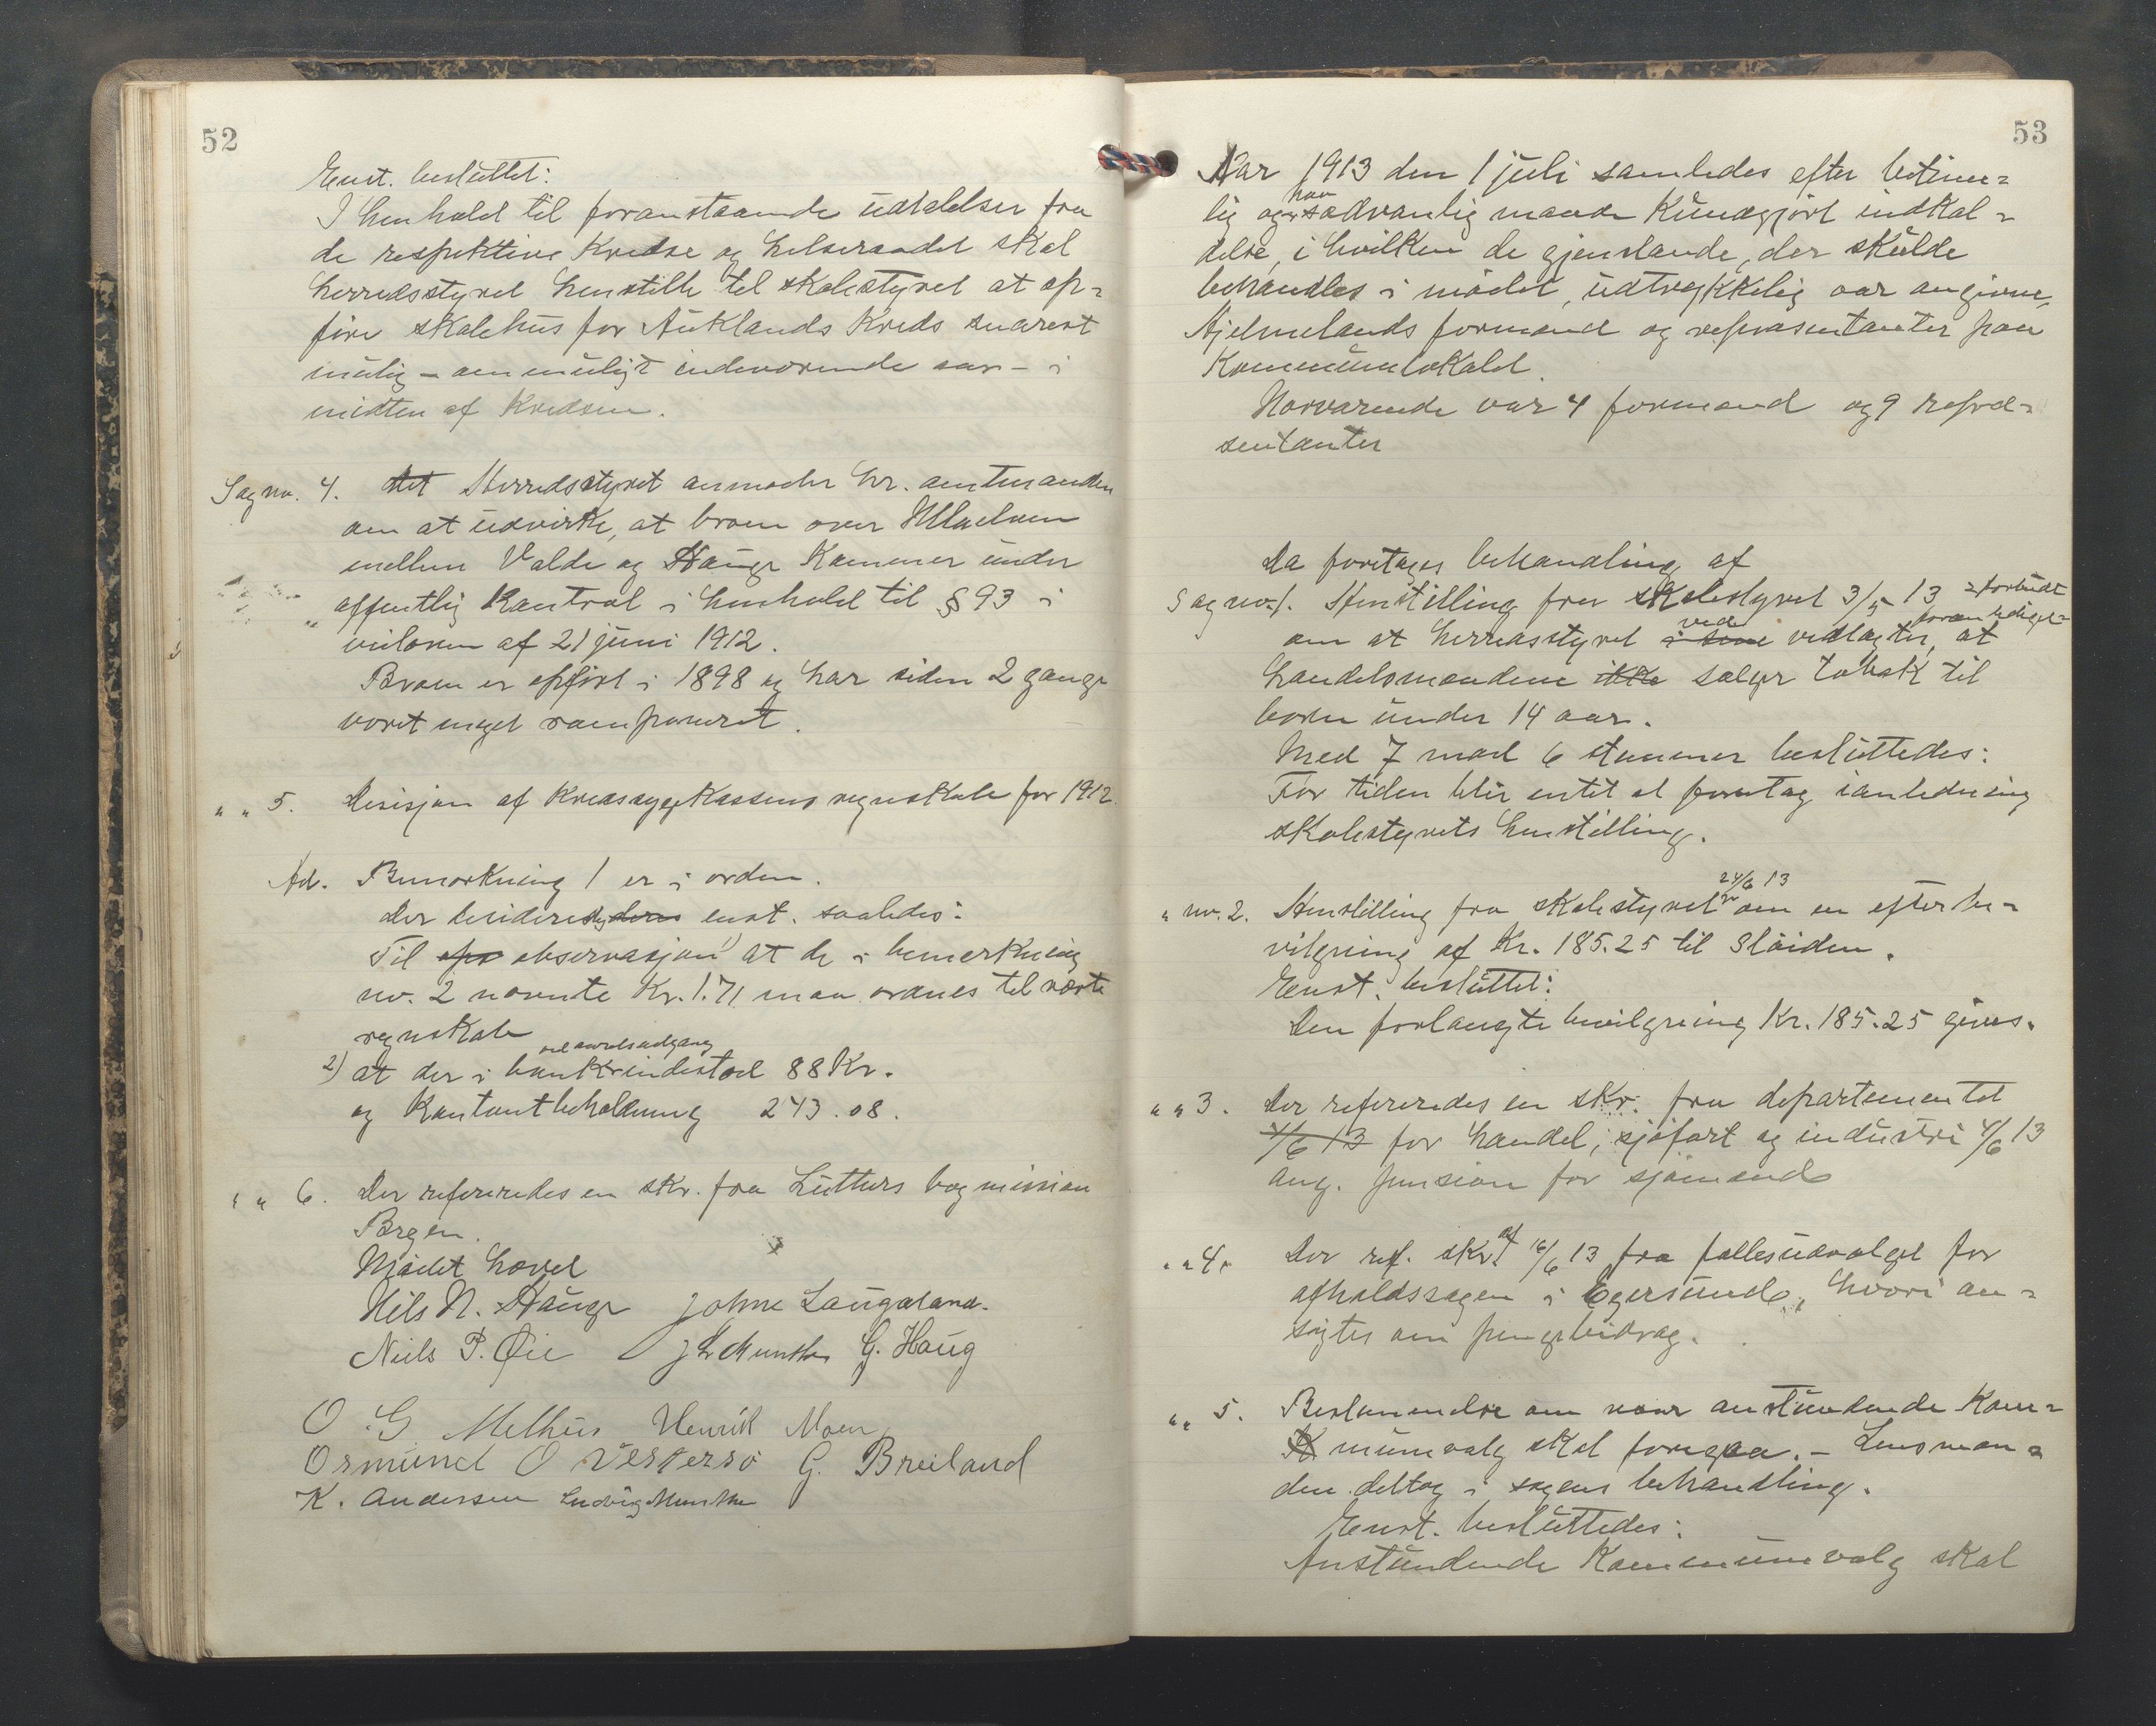 52
Enst. besluttet:
I henhold til foranstaaende udtalelser fra
de respektive kredse og helseraadet skal
herredsstyret henstille til skolestyret at op-
føre skolehus for Auklands kreds snarest
mulig – om muligt indeværende aar – i
midten af kredsen.
Sag no. 4. Det Herredsstyret anmoder hr. amtmanden
om at udvirke, at broen over Ulladalen
mellem Valde og Hauge kommer under
offentlig kontrol i henhold til § 93 i
veiloven af 21 juni 1912.
Broen er opført i 1898 og har siden 2 gange
været meget ramponeret.
" " 5. Desisjon af kredssygekassens regnskab for 1912.
Ad. Bemærkning 1 er i orden.
Der desideredes enst. saaledes:
Til observasjon 1) at de i bemerkning
no. 2 nævnte Kr. 1.71 maa ordnes til næste
regnskab
ved aarets udgang
2) at der i bank indestod 88 Kr.
og kontantbeholdning 243.08.
" " 6. Der refereredes en skr. fra Lutters bogmission
Bergen.
Mødet hævet
Nils N. Hauge Johne Laugaland.
Niels P. Øie J L Munthe G. Haug
O. G. Melhus Henrik Moen
Osmund O Vestersø G. Breiland
K. Andersen Ludvig Munthe
53
Aar 1913 den 1 juli samledes efter betime-
lig og paa sædvanlig maade kundgjort indkal-
delse, i hvilken de gjenstande, der skulde
behandles i mødet, udtrykkelig var angivne,
Hjelmelands formænd og repræsentanter paa
kommunelokalet.
Nærværende var 4 formænd og 9 repræ-
sentanter
Da foretages behandling af
Sag no. 1. Henstilling fra skolestyret 3/5 13
om at herredsstyret i sine ved vedtægter, at
handelsmændene ikke sælger tobak til
børn under 14 aar.
Med 7 mod 6 stemmer besluttedes:
For tiden blir intet at foretag ianledning
skolestyrets henstilling.
" no. 2. Henstilling fra skolestyret 24/6 13 om en efterbe-
vilgning af Kr. 185.25 til Sløiden.
Enst. besluttet:
Den forlangte bevilgning Kr. 185.25 gives.
" " 3. Der refereredes en skr. fra departementet
4/6 13 for handel, sjøfart og industri 4/6 13
ang. pension for sjømænd
" " 4. Der ref. skr. af 16/6 13 fra fællesudvalget for
afholdssagen i Egersund, hvori an-
søgtes om pengebidrag.
" " 5. Bestemmelse om naar anstundende kom-
munevalg skal foregaa. – Lensman-
den deltog i sagens behandling.
Enst. besluttedes:
Anstundende kommunevalg skal